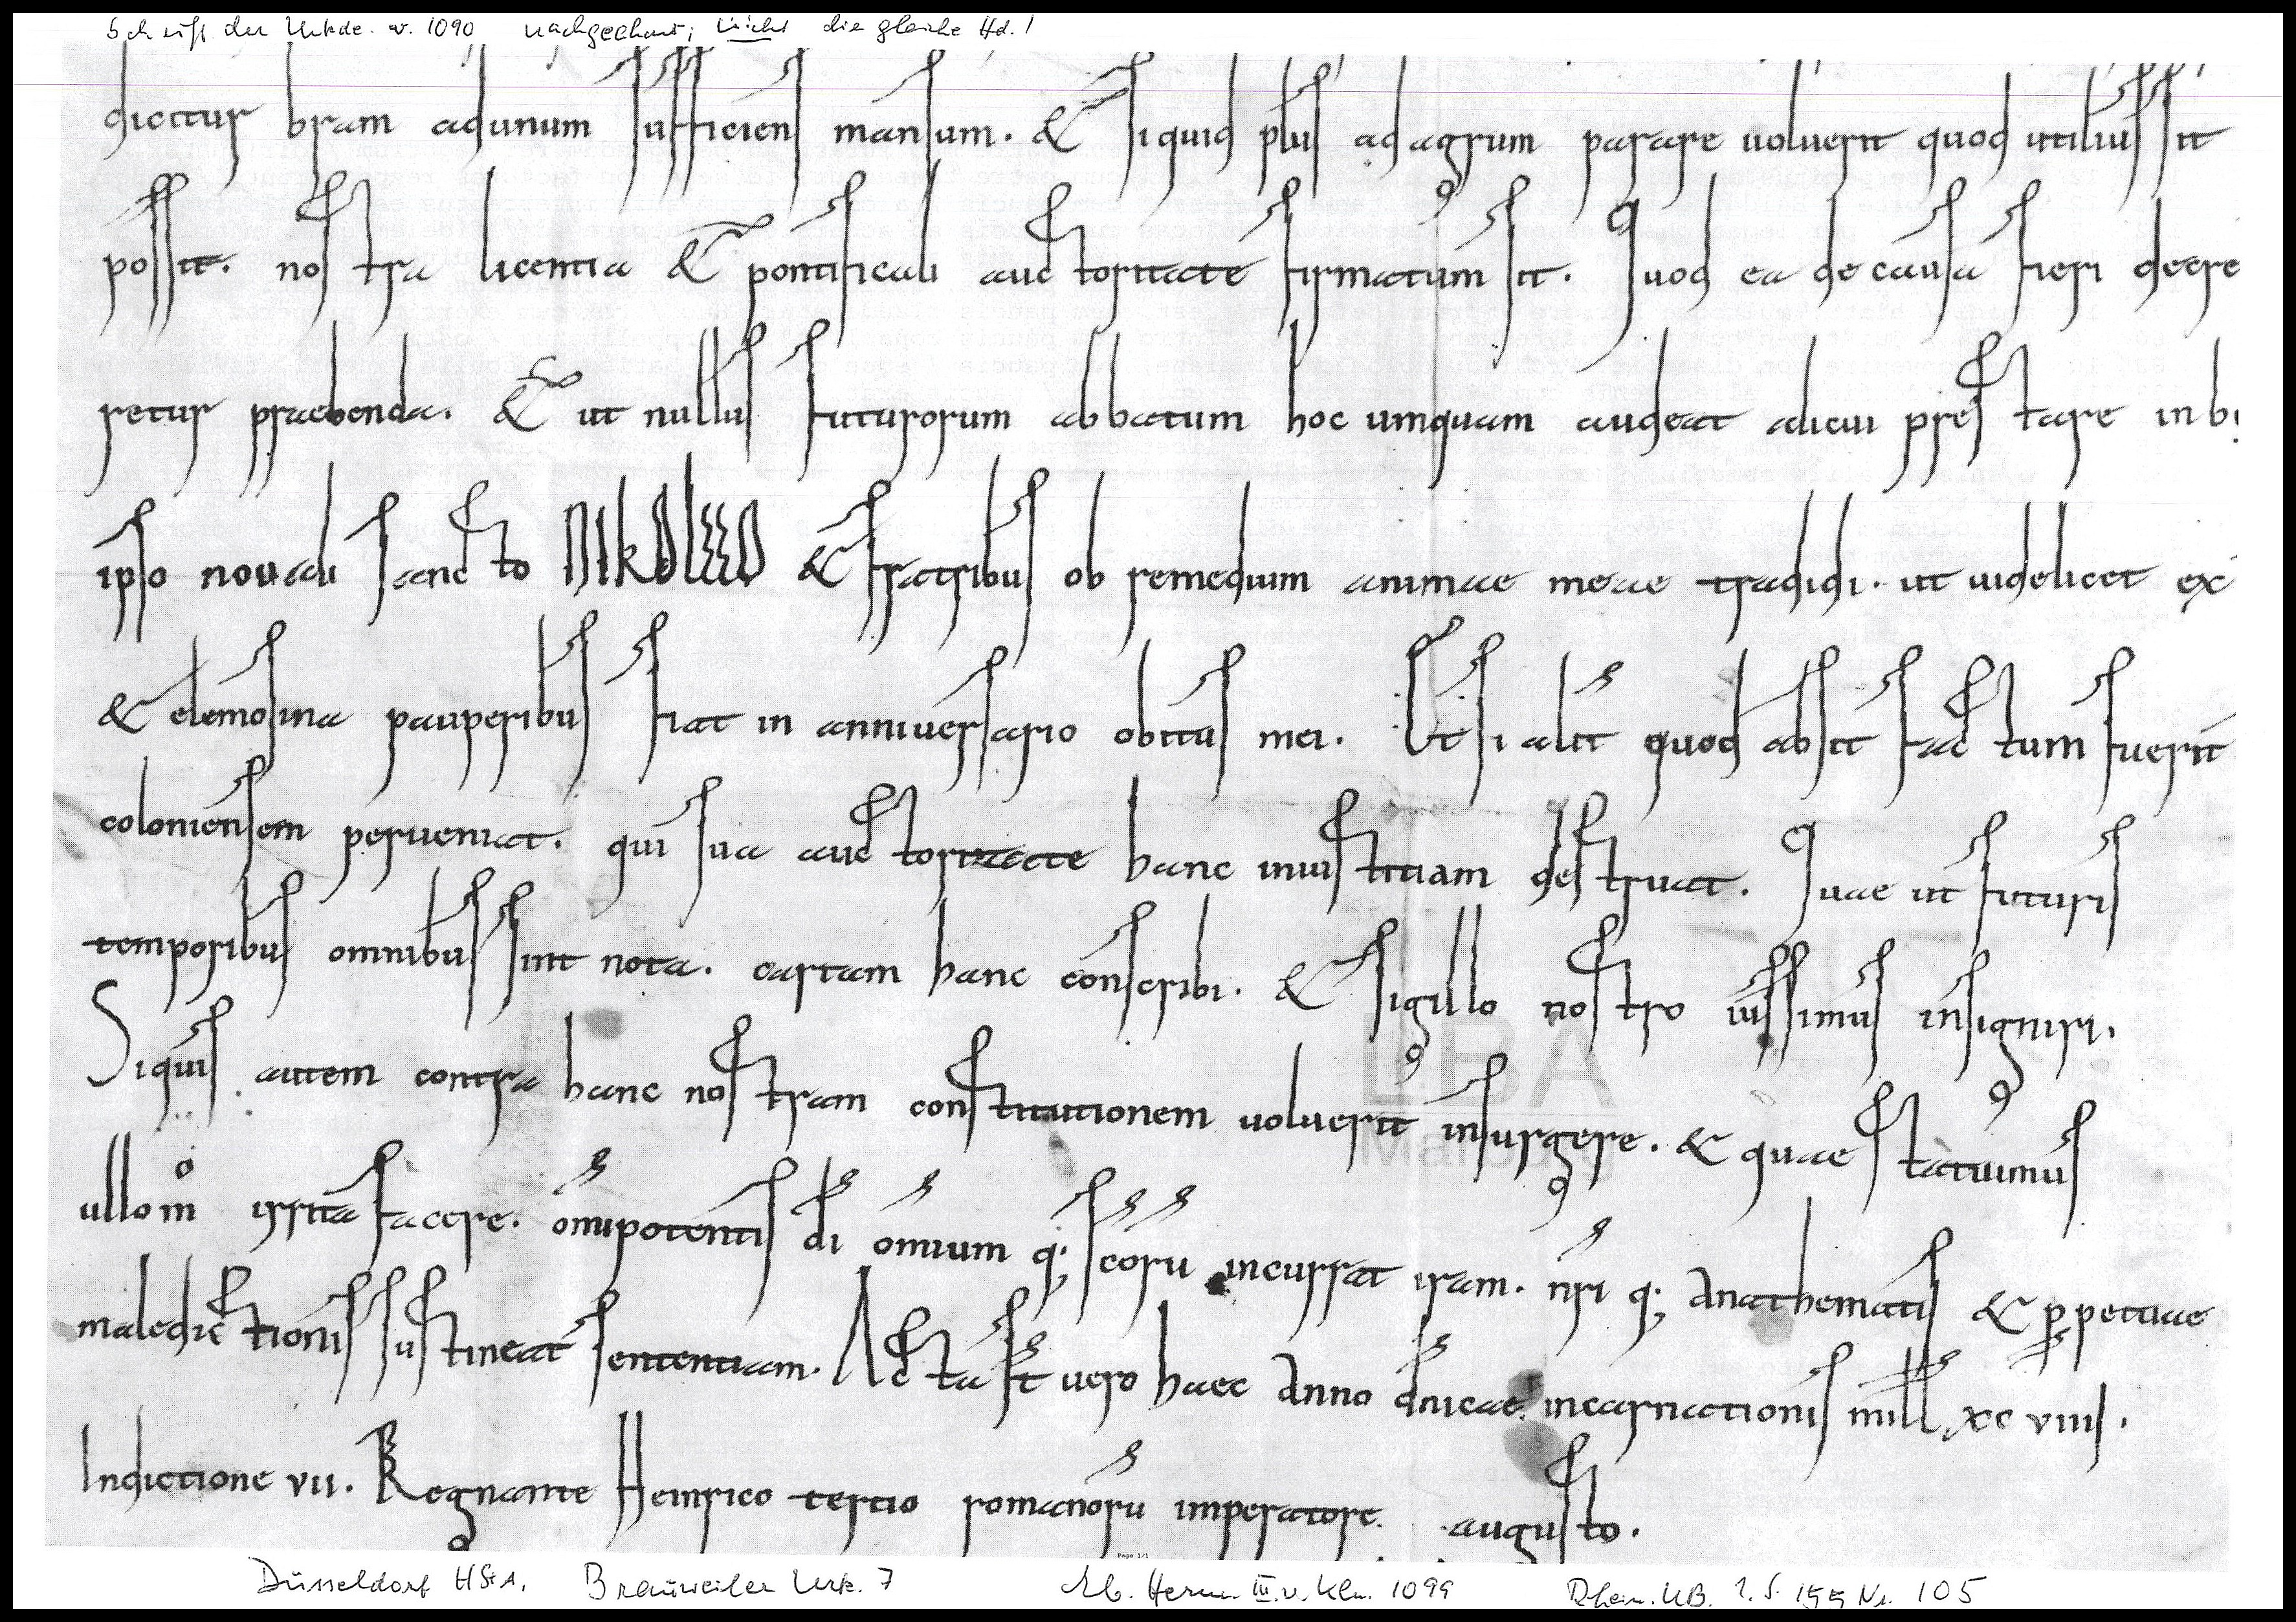 Schrift der Urkde. v. 1090 nachgeahmt; nicht die gleiche Hd.!
dicitur bram ad unum sufficiens mansum. & siquid plus ad agrum parare uoluerit quod utilius sit
possit. nostra licentia & pontificali auctoritate firmatum sit. Quod ea de causa fieri decre
retur praebenda. & ut nullus futurorum abbatum hoc umquam audeat alicui prestare in b
ipso nouali sancto NIKOLAO & fratribus ob remedium animae meae tradidi. ut uidelicet ex
& elemosina pauperibus fiat in anniuersario obitus mei. Et si alit quod absit factum fuerit
coloniensem perueniat. qui sua auctoritate hanc iniustitiam destruat. Quae ut futuris
temporibus omnibus sint nota. cartam hanc conscribi. & sigillo nostro iussimus insigniri.
Siquis autem contra hanc nostram constitutionem uoluerit insurgere. & quae statuimus
ullo mͦ irrita facere. omīpotentis dī omīum q; scōrū incurrat iram. nr̄i q; Anathematis & ꝑpetuae
maledictionis sustineat sententiam. Acta st̄ uero haec Anno dn̄icae incarnationis mill. xc viiii.
Indictione vii. Regnante Heinrico tertio romanorū imperatore augusto.
Düsseldorf HStA, Brauweiler Urk. 7 Eb. Herm. III. v. Kln. 1099 Rhein. UB. 1. S. 155 Nr. 105
LBA
Marburg